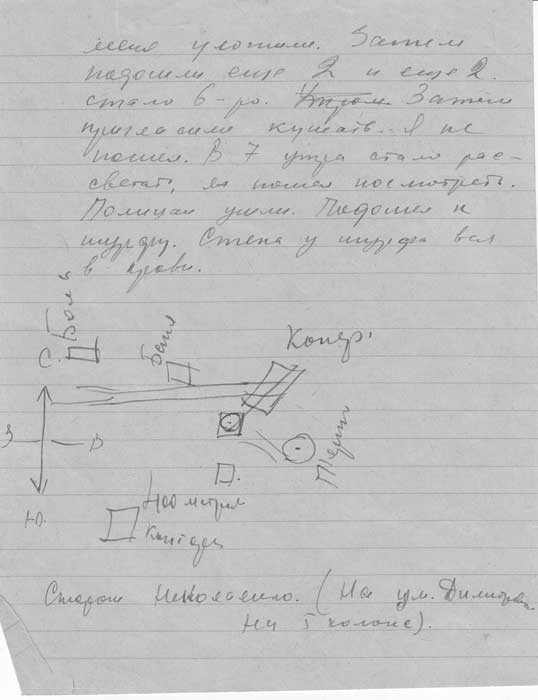 меня уложили. Затем
подошли еще 2 и еще 2.
стало 6-ро. Утром Затем
пригласили кушать. Я не
пошел. В 7 утра стало рас-
светать, я пошел посмотреть.
Полицаи ушли. Подошел к
шурфу. Стена у шурфа вся
в крови.
Баня
Копер.
С.
З
В
Ю.
400 метров
Сторож Николаенко. (На ул. Димитрова
На 5 колоне).